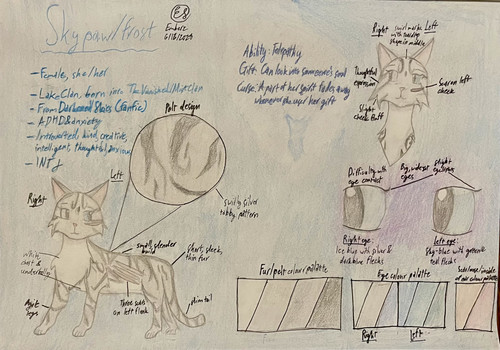 Skypaw/frost
Emberz
6/18/2023
- Female, she/her
- LakeClan, born into The Vanished/MistClan
- From Darkened Stars (Fanfic)
- ADHD & anxiety
- Introverted, kind, creative,
intelligent, thoughtful, anxious
- INFJ
Ability: Telepathy
Gift: Can look into someone's soul
Curse: A part of her spirit fades away
whenever she uses her gift
Pelt design
swirly silver
tabby pattern
Right
swirl marks
with
shape in middle
Left
Thoughtful
expression
Scar on left
cheek
Slight
cheek fluff
Difficulty with
eye contact
Big, wide
eyes
Slight
eyes
Right eye:
Ice blue with
dark blue flecks
Left eye:
Sky-blue with green
teal flecks
Right
Left
white
chest &
underbelly
small, slender
build
short, sleek,
thin fur
legs
Three scars
on left flank
tail
Fur/pelt colour palette
Eye colour palette
Right
left
Scars
ear colour palette